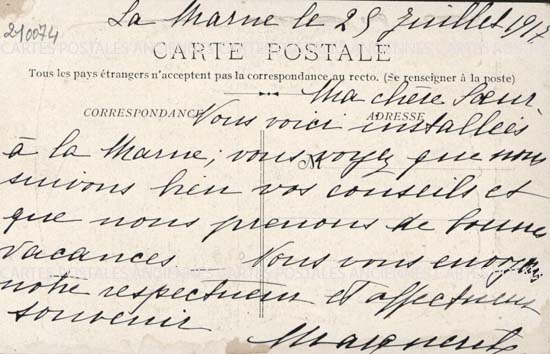 210074
La Marne le 25 Juillet 1917
CARTE POSTALE
Tous les pays étrangers n'acceptent pas la correspondance au recto. (Se renseigner à la poste)
Ma chère Sœur
CORRESPONDANCE
ADRESSE
Nous voici installées
à la Marne; vous voyez que nous
M
suivons bien vos conseils et
que nous prenons de bonnes
vacances. Nous vous envoyons
notre respectueux et affectueux
souvenir
Marguerite
CARTES POSTALES ANCIENNES